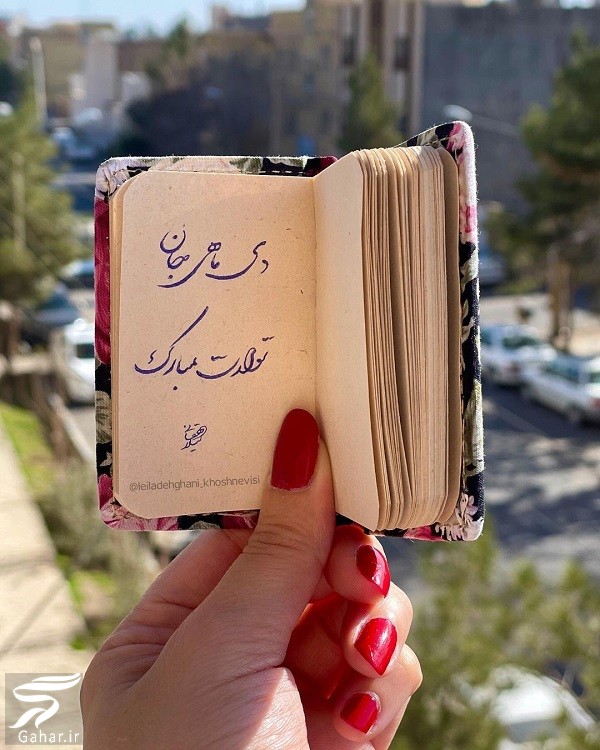 دی ماهی جان
تولدت مبارک
@leiladehghani_khoshnevisi
Gahar.ir